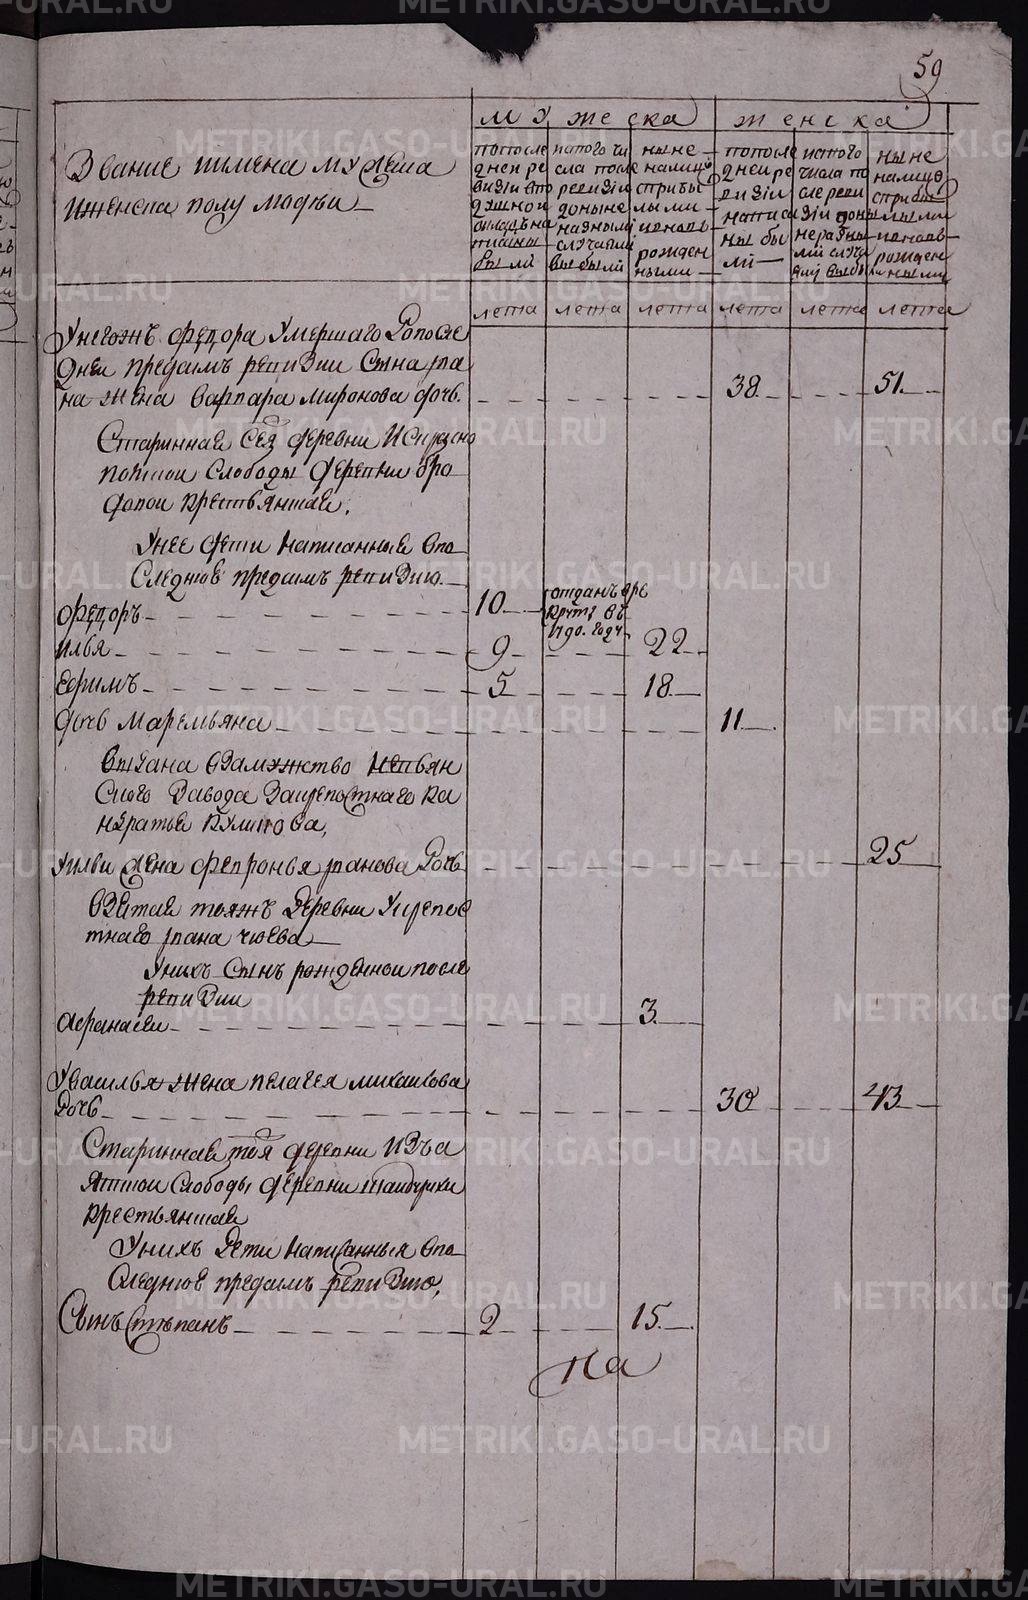 59
мужеска
женска
Звание иимена мужеска
иженска полу людеи
попосле днеи ре визiи вро дэшнои написаны были
истого чи сла после ревизiи доныне разными случаями выбыли
ныне налицо сприбы лыми ивновь рожден ными
попосле днеи ре визiи написа ны бы ли
истого числа по сле реви зiи доны не разны ми случа ями выбыли
ныне налицо сприбы лыми ивновь рожден ными
лета лета лета лета лета лета
Унегожъ федора умершаго допосле
днеи предсимъ ревизии сына ива
на жена варвара миронова дочь 38 51
Старинная сея деревни
Слободы деревни бро
довои крестьянская,
Унее дети написанныя впо
следнюю предсимъ ревизию
федоръ 10 отданъ вре круты въ году
илья 9 22
ефимъ 5 18
дочь маремьяна 11
выдана взамужство невьян
скаго завода
куликова,
Уильи жена февронья иванова дочь 25
взятая тояжъ деревни
ивана чюева
Унихъ сынъ рожденнои после
ревизии
афанасеи 3
Увасилья жена пелагея михаилова
дочь 30 43
Старинная тоя деревни
слободы деревни
крестьянская
Унихъ дети написанныя впо
следнюю предсимъ ревизию,
Сынъ степанъ 2 15
На
METRIKI.GASO-URAL.RU